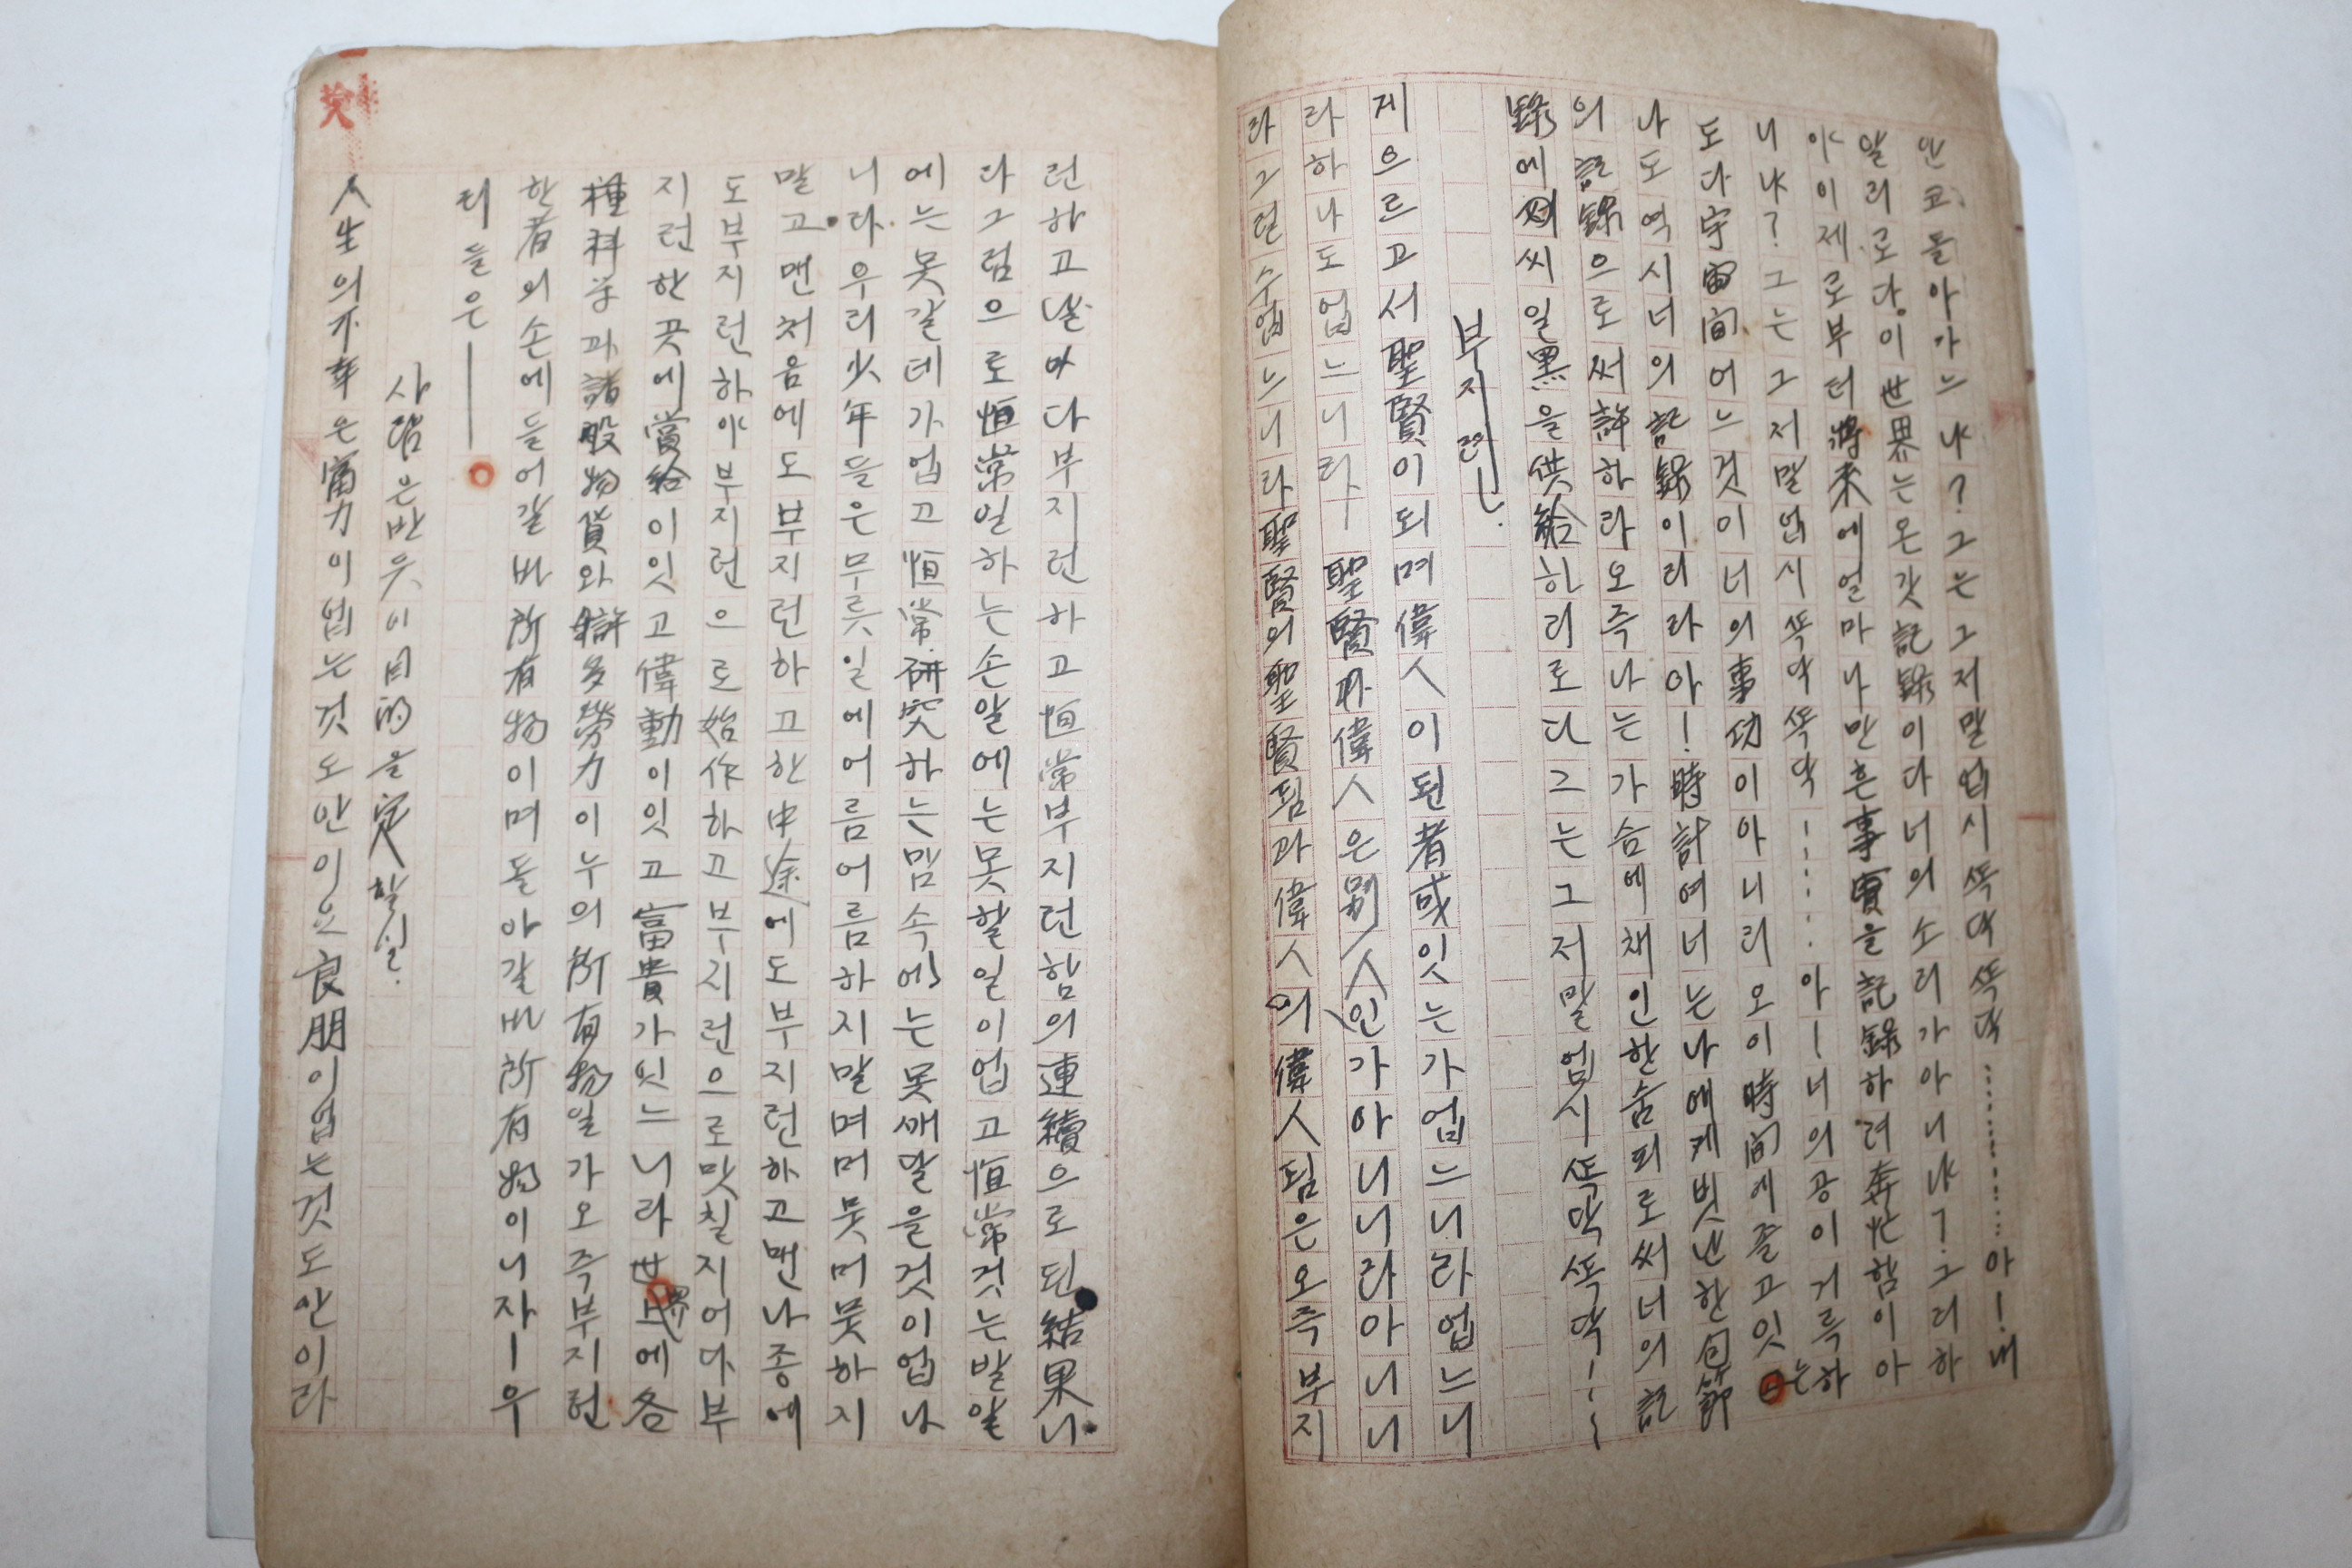 안코돌아가느냐?그는그저말업시똑딱똑딱…………아!내
알리로다。이世界는온갓記錄이다너의소리가아니냐?그러하
야이제로부터將來에얼마나만흔事實을記錄하려奔忙함이아
니냐?그는그저말업시똑딱똑딱!……아!너의공이거륵하
도다宇宙間어느것이너의事功이아니리오이時間에즐고잇는
나도역시너의記錄이리라아!時計여너는나에케빗난한句節
의記錄으로써許하라오즉나는가슴에채인한숨피로써너의記
錄에써일黑을供給하리로다그는그저말업시똑딱똑딱!!~
부지런.
게으르고서聖賢이되며偉人이된者或잇는가업느니라업느니
라하나도업느니라—聖賢과偉人은別人인가아니니라아니니
라그런수업느니라聖賢의聖賢됨과偉人의偉人됨은오즉부지
런하고날마다부지런하고恒常부지런함의連續으로된結果니
라그럼으로恒常일하는손앞에는못할일이업고恒常것는발앞
에는못갈데가업고恒常硏究하는맘속에는못깨달을것이업나
니라우리少年들은무릇일에어름어름하지말며머뭇머뭇하지
말고맨처음에도부지런하고한中途에도부지런하고맨나종에
도부지런하야부지런으로始作하고부지런으로맛칠지어다부
지런한곳에當給이잇고偉動이잇고富貴가잇느니라世界에各
種科学과諸般物貨와許多勞力이누의所有物일가오즉부지런
한者의손에들어갈바所有物이며돌아갈바所有物이니자—우
리들은——
사람은반듯이目的을定할일.
人生의不幸은富力이업는것도안이요良朋이업는것도안이라